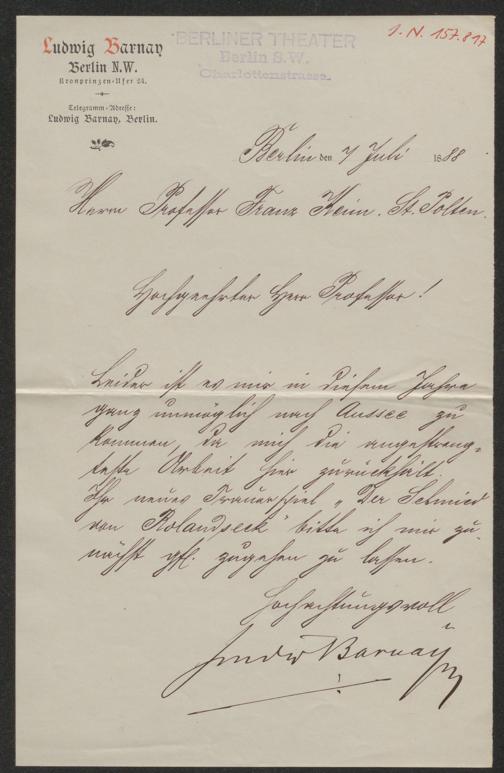 Ludwig Barnay
Berlin N.W.
Kronprinzen-Ufer 24.
Telegramm-Adresse:
Ludwig Barnay, Berlin.
BERLINER THEATER
Berlin S.W.
Charlottenstrasse.
I. N. 157.817
Berlin den 7 Juli 1888
Herrn Professor Franz Keim. St. Pölten.
Hochgeehrter Herr Professor!
Leider ist es mir in diesem Jahre
ganz unmöglich nach Aussee zu
kommen, da mich die angestreng-
teste Arbeit hier zurückhält.
Ihr neues Trauerspiel „Der Schmied
von Rolandseck" bitte ich mir zu-
nächst gfl. zugehen zu lassen.
Hochachtungsvoll
Ludwig Barnay